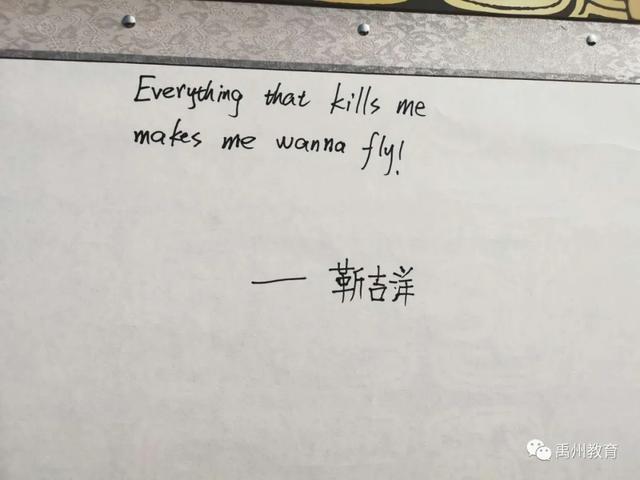 Everything that kills me
makes me wanna fly!
— 靳吉洋
禹州教育